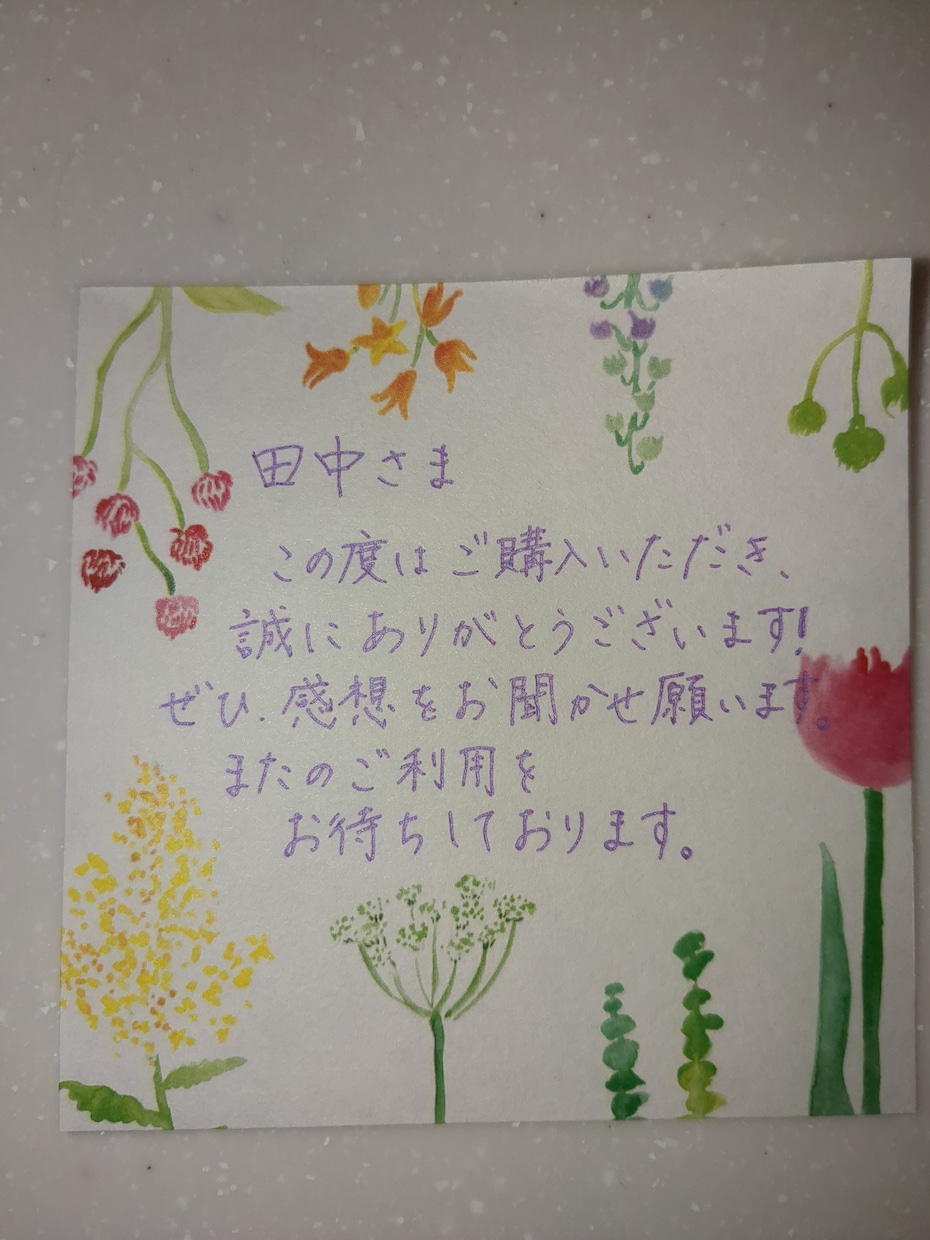 田中さま
この度はご購入いただき、
誠にありがとうございます!
ぜひ、感想をお聞かせ願います。
またのご利用を
お待ちしております。